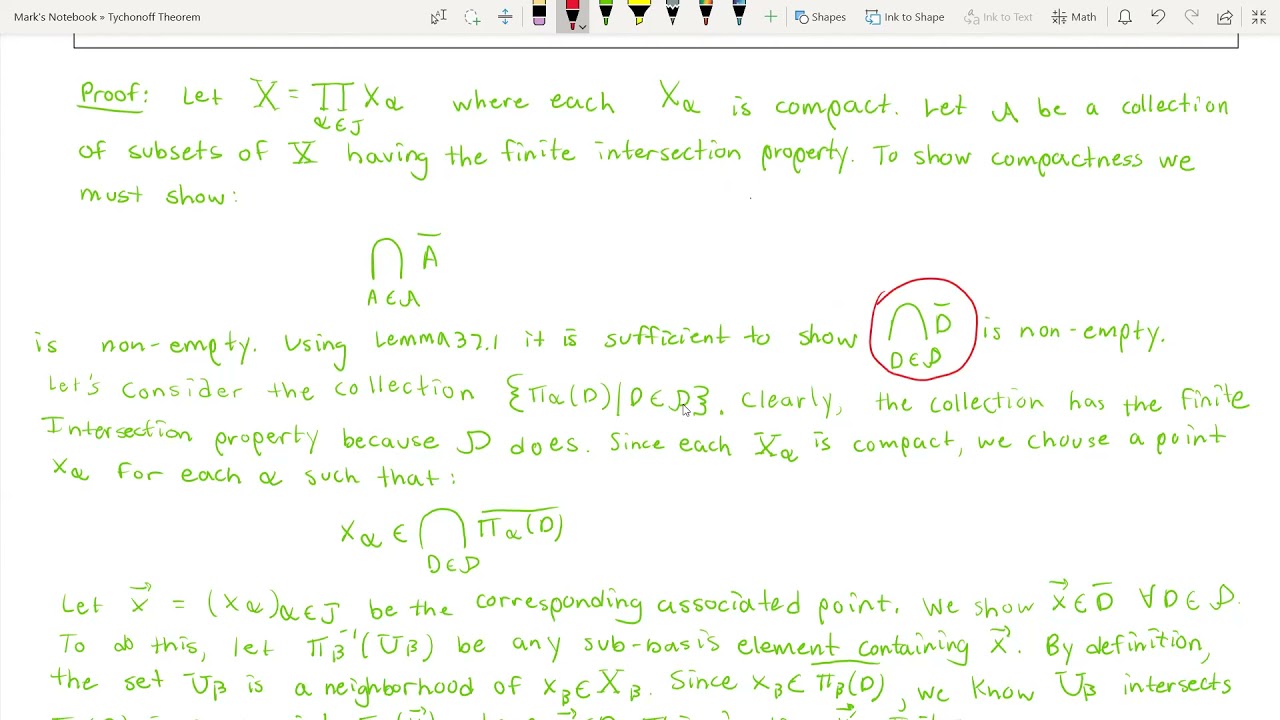 Mark's Notebook » Tychonoff Theorem
Shapes
Ink to Shape
Ink to Text
Math
Proof: Let X = ∏_{α∈J} X_α where each X_α is compact. Let 𝒜 be a collection
of subsets of X having the finite intersection property. To show compactness we
must show:
⋂_{A∈𝒜} A̅
is non-empty. Using Lemma 37.1 it is sufficient to show ⋂_{D∈𝒟} D̅ is non-empty.
Let's consider the collection {π_α(D) | D∈𝒟}. Clearly, the collection has the finite
Intersection property because 𝒟 does. Since each X_α is compact, we choose a point
x_α for each α such that:
x_α ∈ ⋂_{D∈𝒟} \overline{π_α(D)}
Let x⃗ = (x_α)_{α∈J} be the corresponding associated point. We show x⃗ ∈ D̅ ∀D∈𝒟.
To do this, let π_β^{-1}(U_β) be any sub-basis element containing x⃗. By definition,
the set U_β is a neighborhood of x_β∈X_β. Since x_β∈ \overline{π_β(D)}, we know U_β intersects